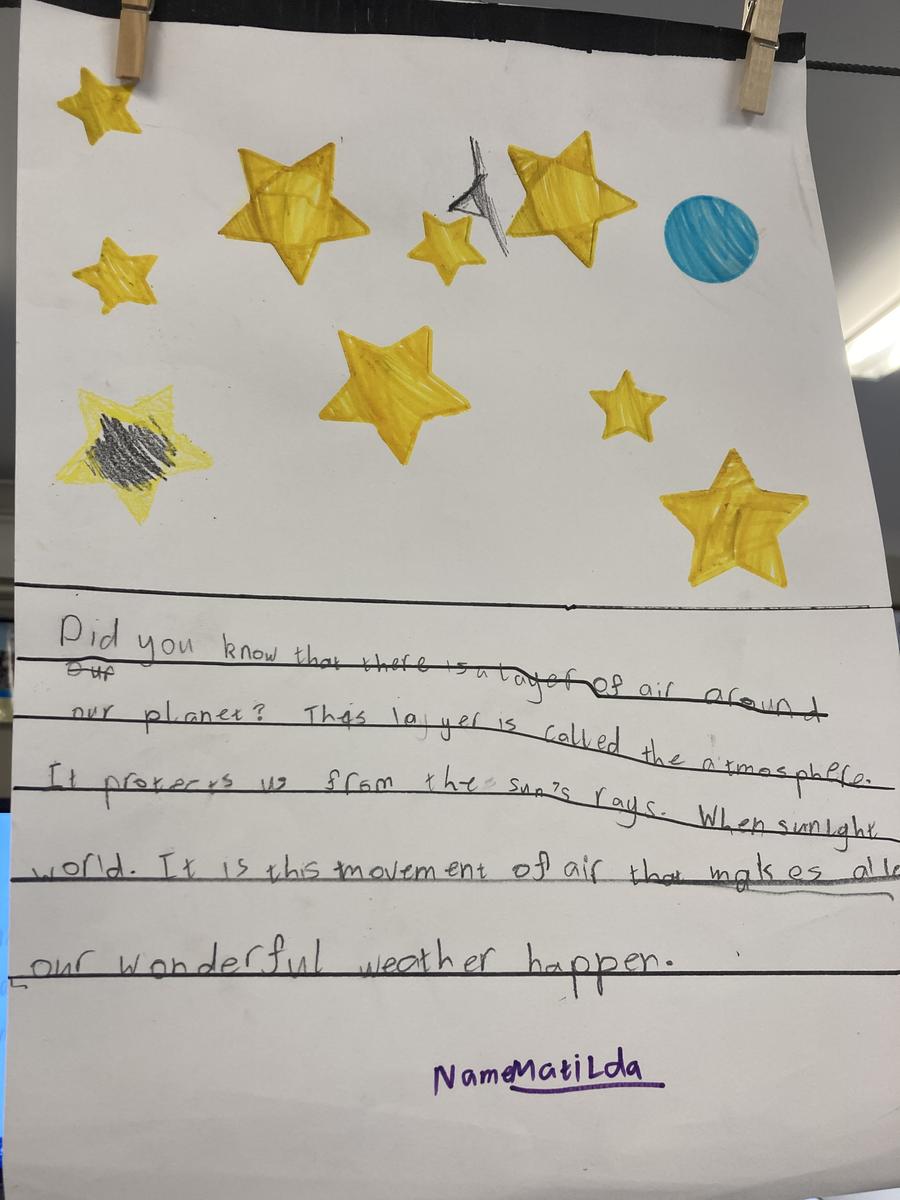 Did you know that there is a layer of air around
our planet? This layer is called the atmosphere.
It protects us from the sun's rays. When sunlght
world. It is this movement of air that makes alle
our wonderful weather happen.
Name Matilda